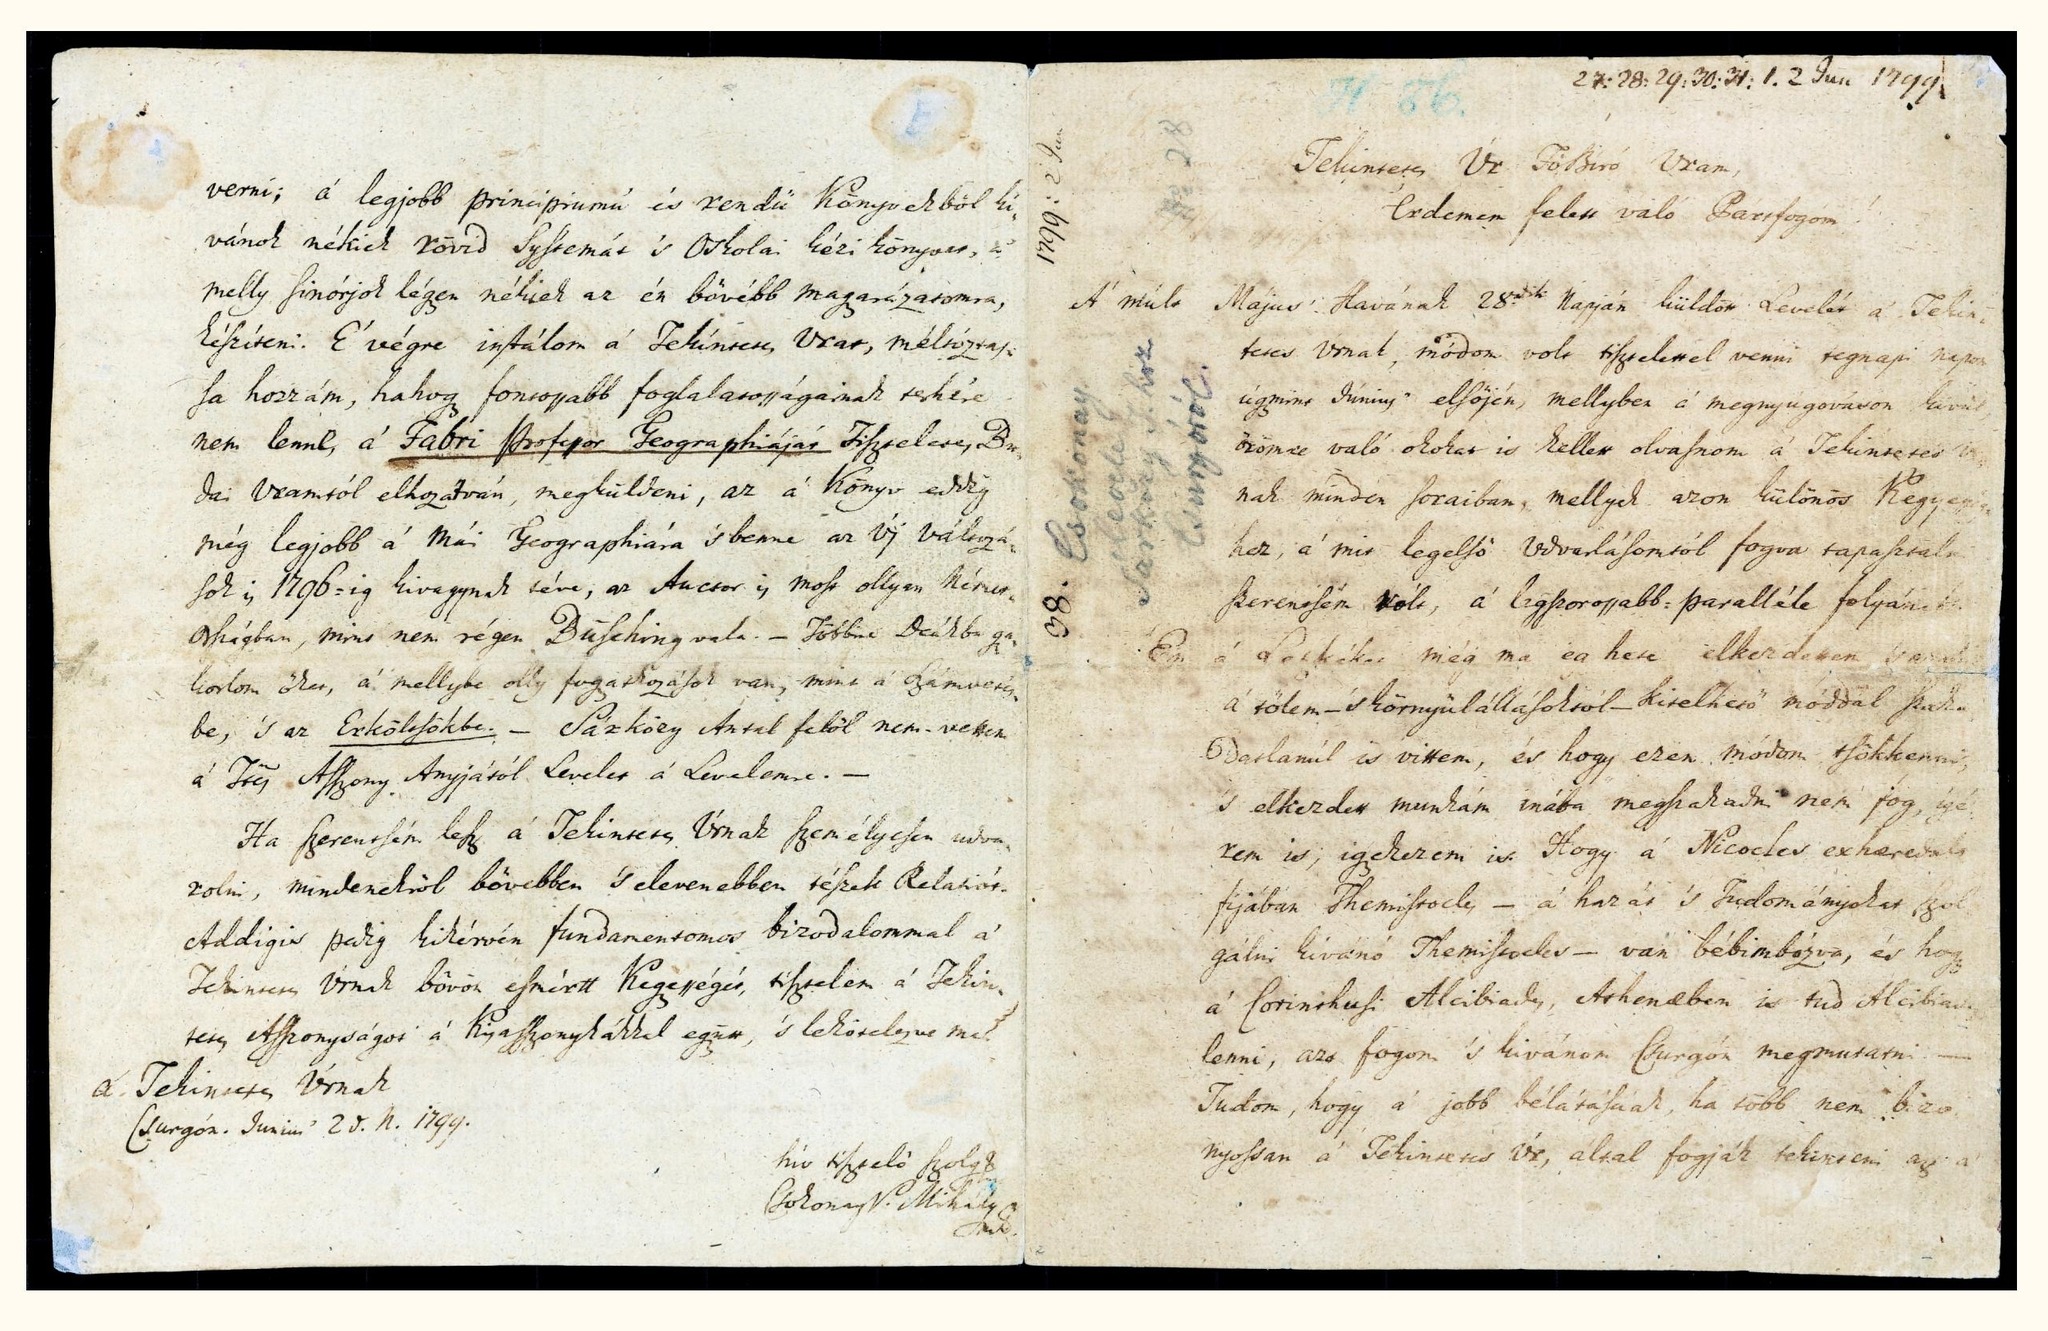 verni; á legjobb principiumú és rendű Könyvekből kí-
vánok nékiek rövid Systemát 's Oskolai kézi könyvet,
melly sinórjok légyen nékiek az én bővebb magyarázatomra,
késziteni. E' végre instálom á Tekíntetes Urat, méltóztas-
sa hozzám, hahogy fontossabb foglalatosságainak terhére
nem lenne, á Fabri Professor Geographiáját Tiszteletes Bu-
dai Uramtól elhozatván, megküldeni, az á Könyv eddig
még legjobb á Mái Geographiára 's benne az Új változá-
sok is 1796=ig kivagynak téve, az Auctor is most ollyan Német-
Országban, mint nem régen Büsching vala. — Többire Deákba gya-
korlom őket, á mellybe olly fogyatkozások van, mint á Számvetés-
be, 's az Erkőltsökbe. — Sárközy Antal felöl nem vettem
á Ttes Asszony Anyjától Levelet á Levelemre. —
Ha szerentsém lesz á Tekintetes Úrnak személyesen udva-
rolni, mindenekről bővebben 's elevenebben tészek Relatiót.
Addigis pedig kikérvén fundamentomos bizodalommal á
Tekintetes Úrnak bővön esmértt Kegyességét, tisztelem á Tekin-
tetes Asszonyságot á Kisasszonykákkal együtt, 's lekötelezve
á Tekintetes Úrnak
Csurgón. Junius' 2d. N. 1799.
hív tisztelő szolgája
Csokonay V. Mihály
1799: 2 Jun
38. Csokonay
levele
Sárközyhez
Csurgóról.
27: 28: 29: 30: 31: 1. 2 Jun 1799
Tekintetes Úr Fő Biró Uram,
Érdemem felett való Pártfogóm!
A' múlt Május' Havának 28dik Napján küldött Levelét á Tekin-
tetes Urnak, módom volt tisztelettel venni tegnapi napon
úgymint Június' elsőjén, mellyben á megnyugováson kivül,
örömre való okokat is kellett olvasnom á Tekintetes Úr-
nak minden soraiban, mellyek azon különös Kegyességé-
hez, á mit legelső Udvarlásomtól fogva tapasztalni
szerentsém vólt, á legszorossabb=paralléle folyának.
Én á Letzkéket még ma egy hete elkezdettem
á tőlem — 's környűlállásoktól — kitelhető móddal szaka-
datlanúl is vittem, és hogy ezen módom tsökkenni,
's elkezdett munkám inába megszakadni nem fog, ígé-
rem is, igyekezem is. Hogy á Nicocles exhæredált
fijában Themistocles — á hazát 's Tudományokat szol
gálni kívánó Themistocles — van bébimbózva, és hogy
á Corinthusi Alcibiades, Athenæben is tud Alcibiades
lenni, azt fogom 's kivánom Csurgón megmutatni —
Tudom, hogy á jobb bélátásúak, ha több nem bizo-
nyossan á Tekintetes Úr, által fogják tekinteni azt á